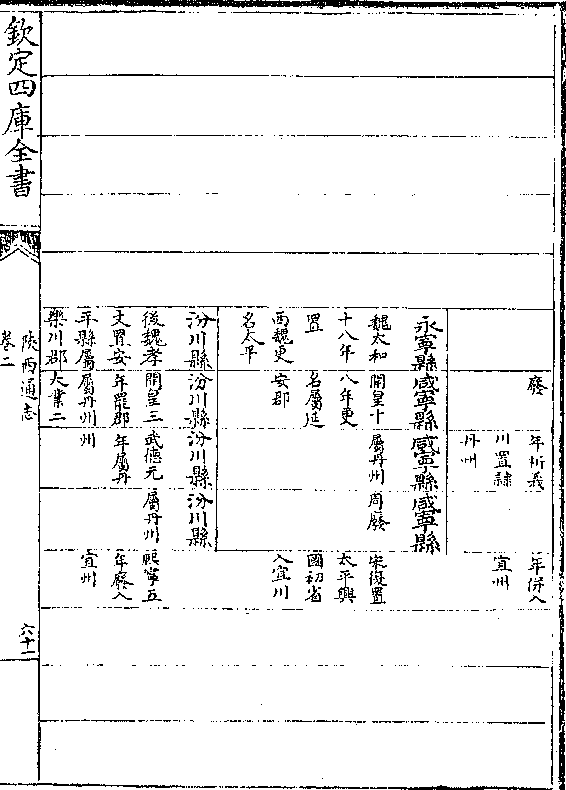 廢 年析義 年併入
川置隸 宜州
丹州
永寧縣 咸寧縣 咸寧縣 咸寧縣
魏太和 開皇十 屬丹州 周廢 宋復置
十八年 八年更 太平興
置 名屬延 國初省
西魏更 安郡 入宜川
名太平
汾川縣 汾川縣 汾川縣 汾川縣
後魏孝 開皇三 武德元 屬丹州 熙寧五
文置安 年罷郡 年屬丹 年廢入
平縣屬 屬丹州 州 宜州
樂川郡 大業二
欽定四庫全書
陝西通志
卷二
六十一